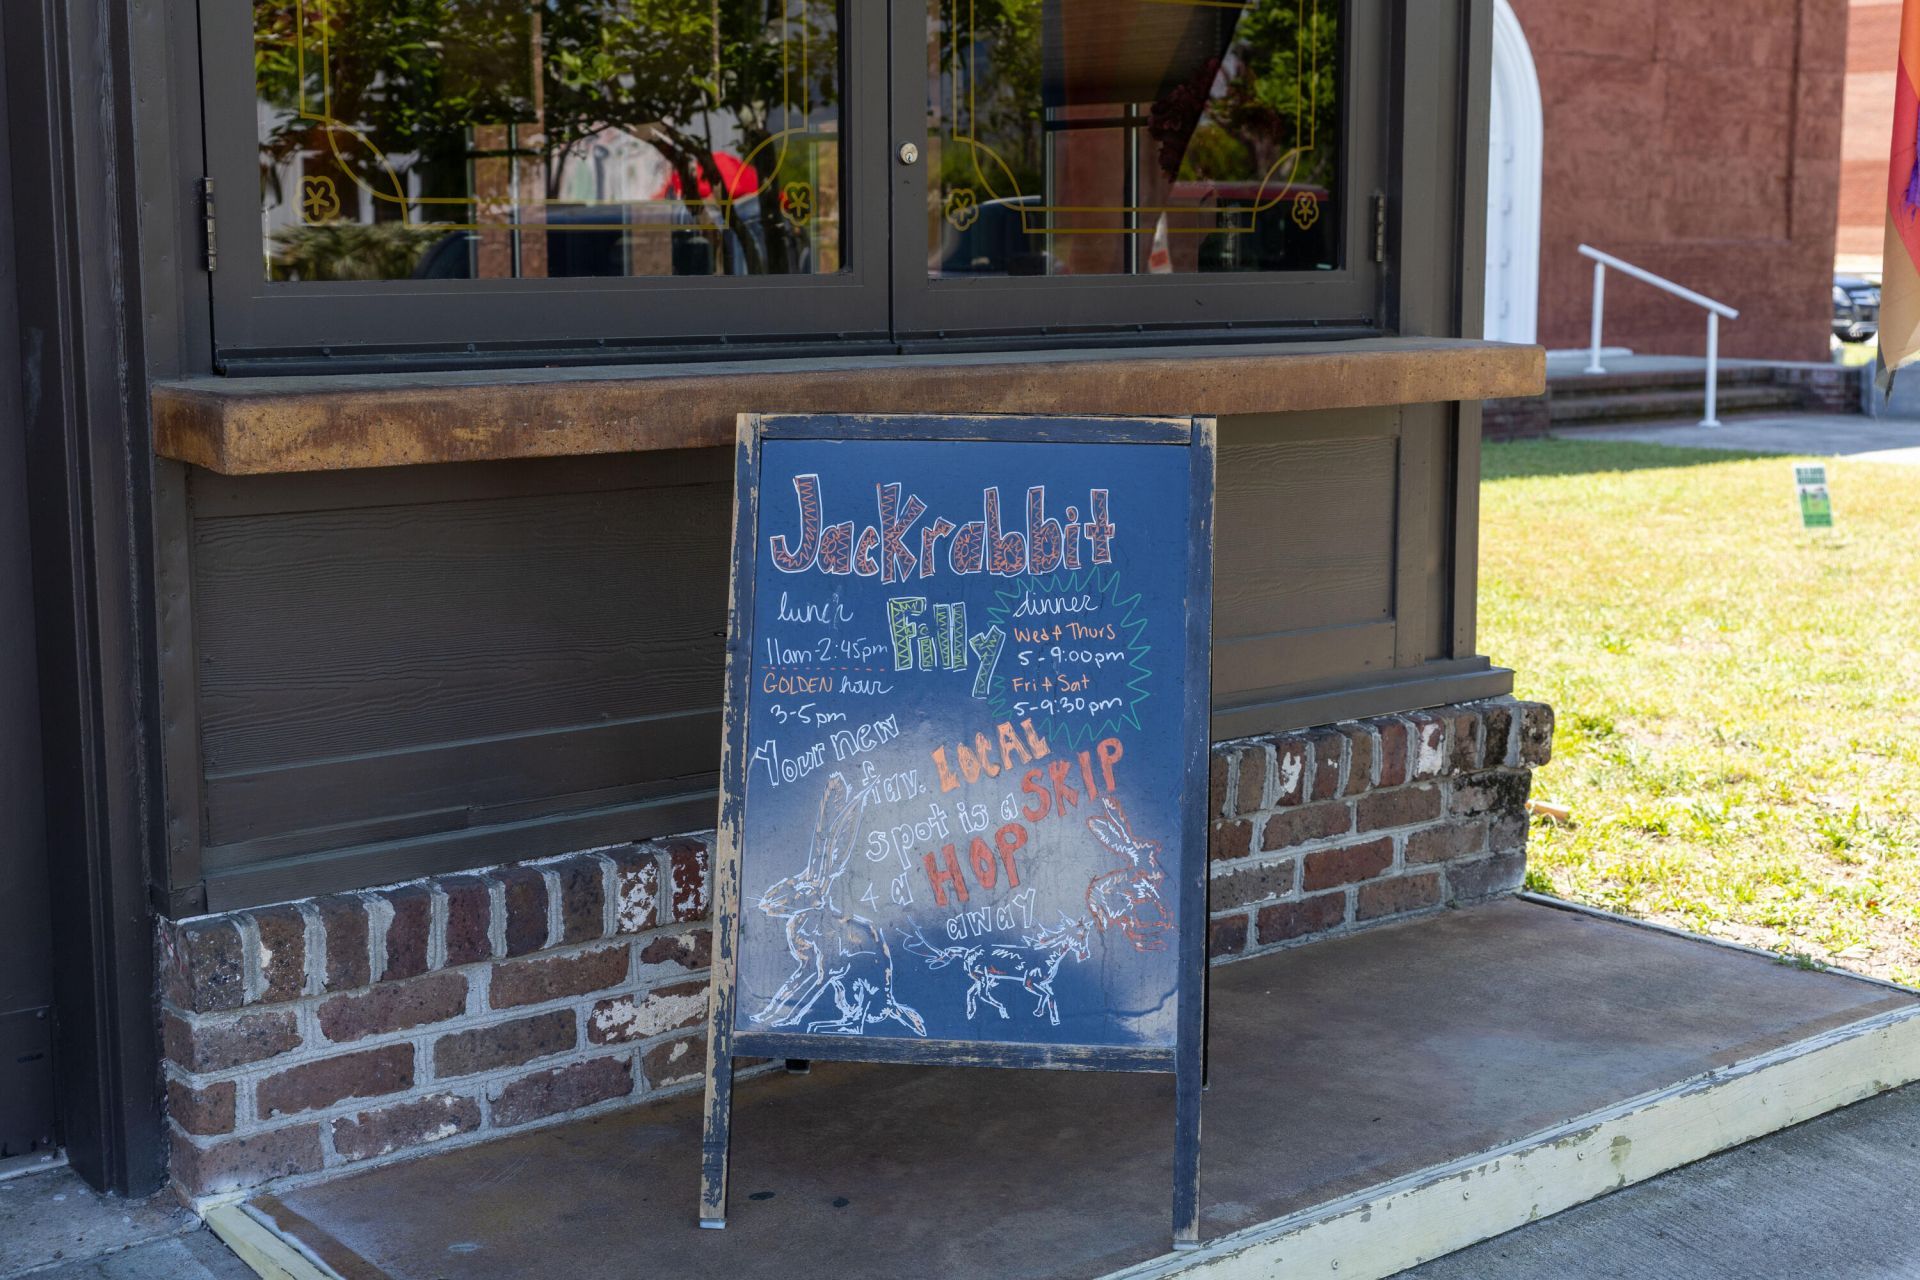 Jackrabbit
Filly
lunch
11am-2:45pm
GOLDEN hour
3-5pm
dinner
Wed + Thurs
5-9:00pm
Fri + Sat
5-9:30pm
Your new
fav. LOCAL
spot is a SKIP
+ a HOP
away